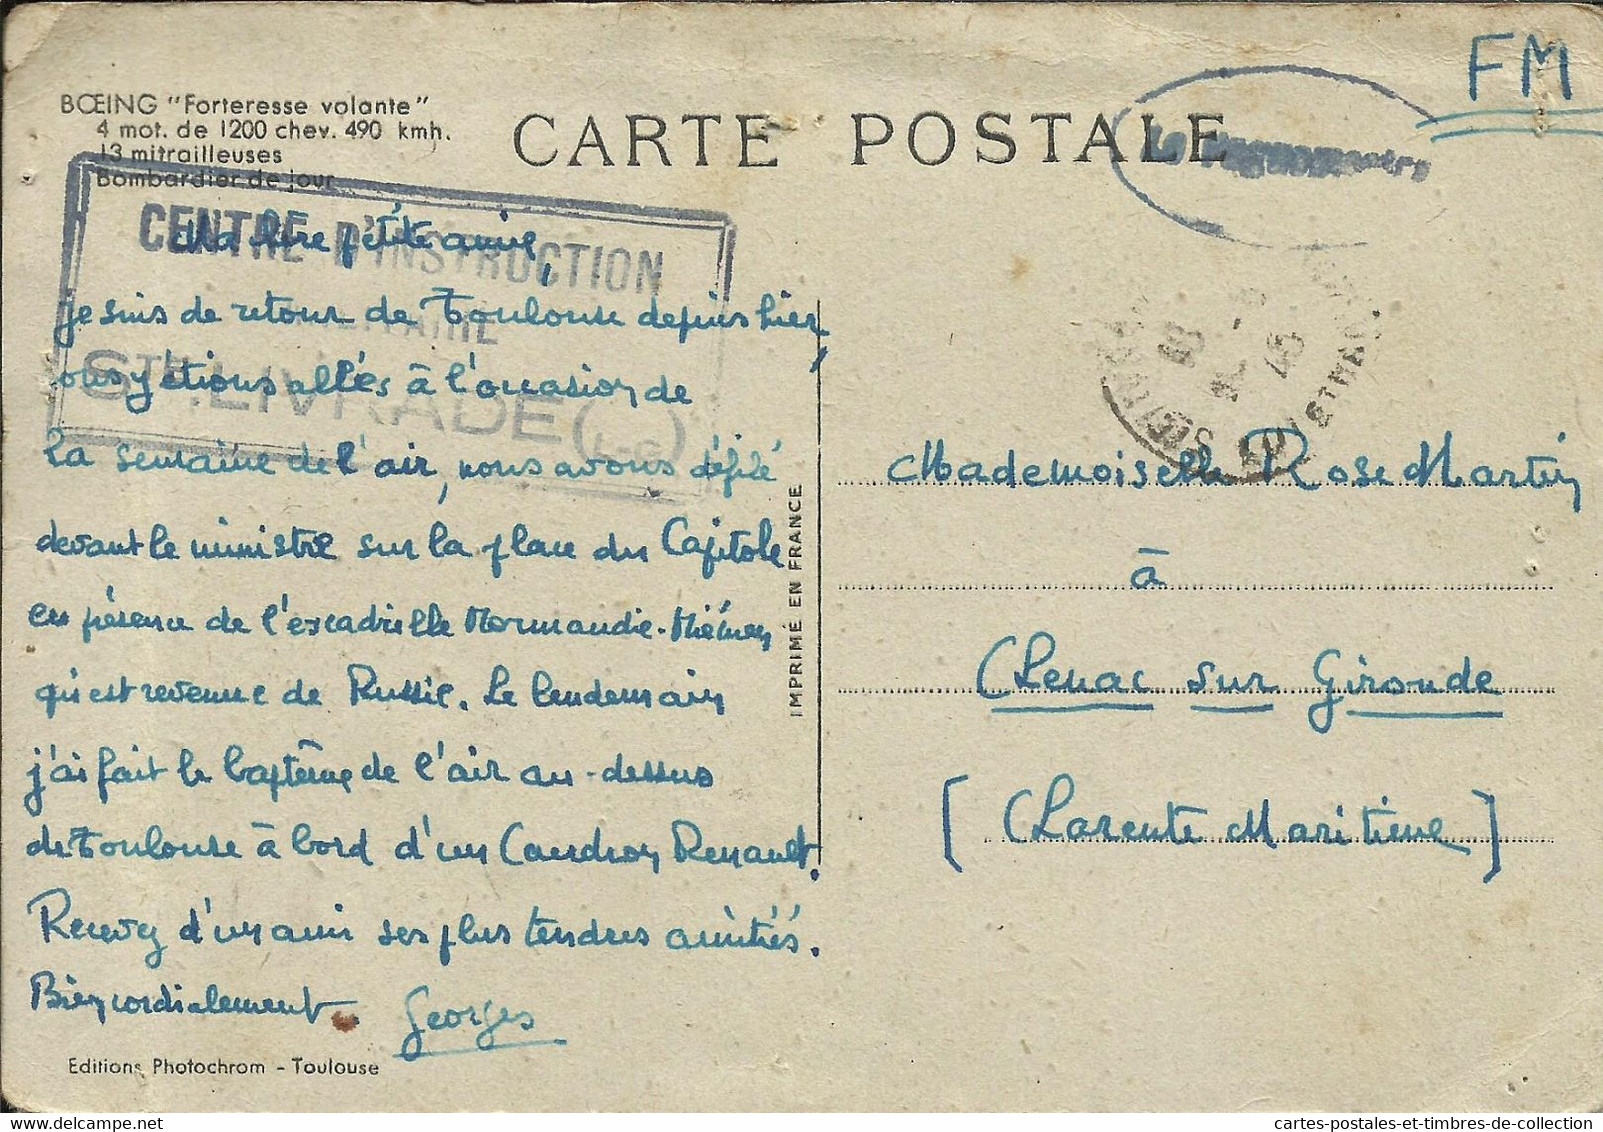 BŒING "Forteresse volante"
4 mot. de 1200 chev. 490 kmh.
13 mitrailleuses
Bombardier de jour
CARTE POSTALE
FM
CENTRE D'INSTRUCTION
STE LIVRADE (L-G)
Ma chère petite amie,
je suis de retour de Toulouse depuis hier,
nous y étions allés à l'occasion de
la semaine de l'air, nous avons défilé
devant le ministre sur la place du Capitole
en présence de l'escadrille Normandie-Niémen
qui est revenue de Russie. Le lendemain
j'ai fait le baptême de l'air au-dessus
de Toulouse à bord d'un Caudron Renault.
Recevez d'un ami ses plus tendres amitiés.
Bien cordialement. Georges
Editions Photochrom - Toulouse
IMPRIMÉ EN FRANCE
Mademoiselle Rose Martin
à
Chenac sur Gironde
[Charente Maritime]
cartes-postales-et-timbres-de-collection.com